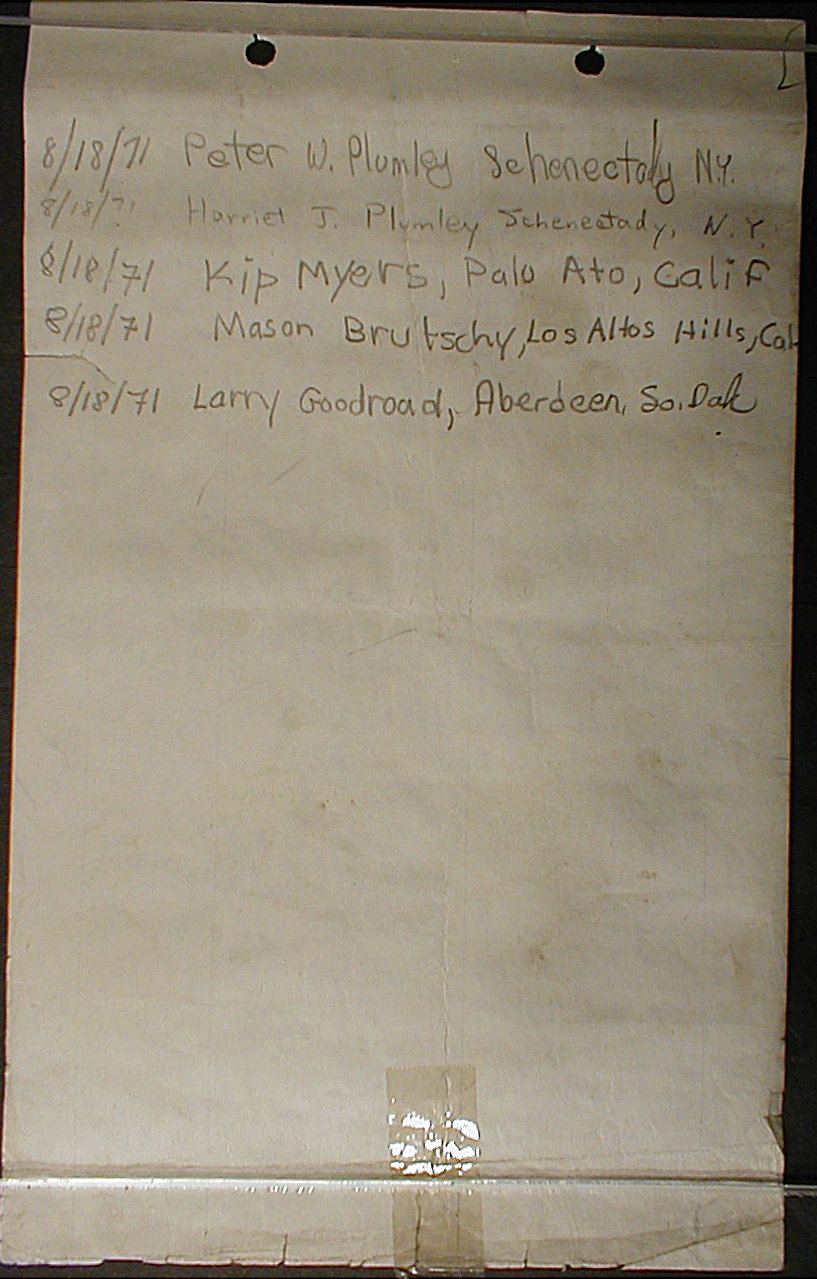 8/18/71 Peter W. Plumley Schenectady N.Y.
8/18/71 Harriet J. Plymley Schenectady, N.Y.
8/18/71 Kip Myers, Palo Ato, Calif
8/18/71 Mason Brutschy, Los Altos Hills, Cal
8/18/71 Larry Goodroad, Aberdeen, So. Dak